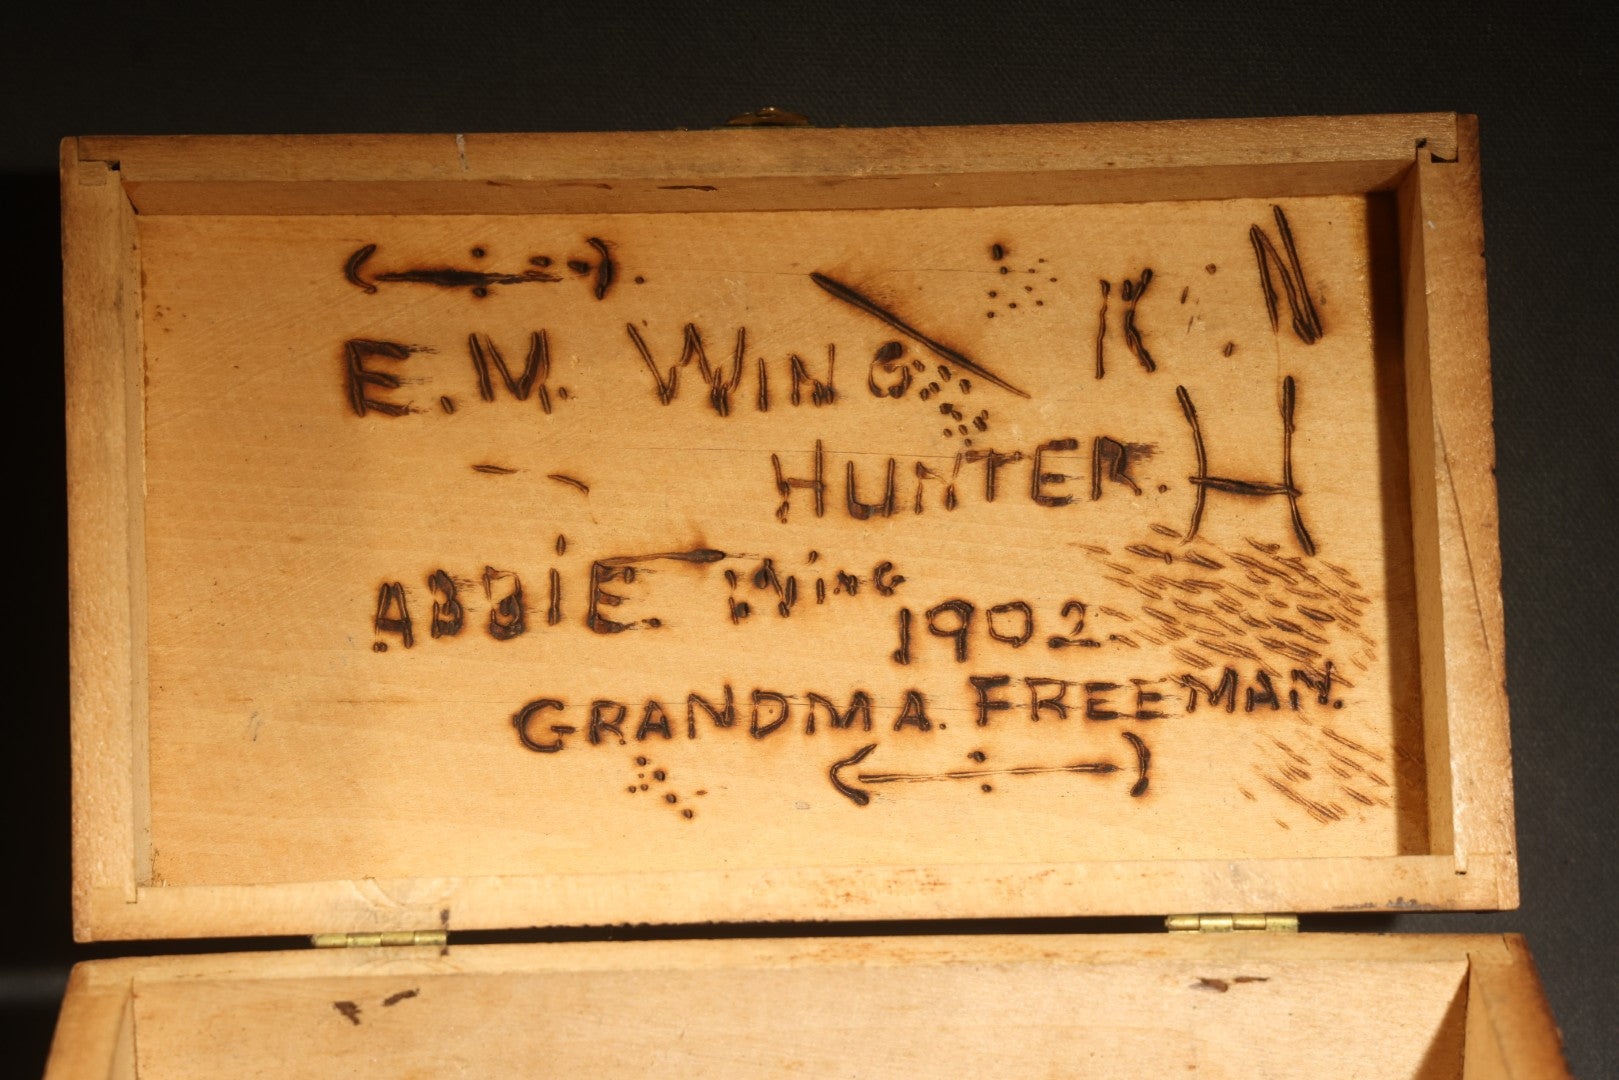 E.N. WING
HUNTER.
K. N
H
ABBIE. WING
1902.
GRANDMA. FREEMAN.